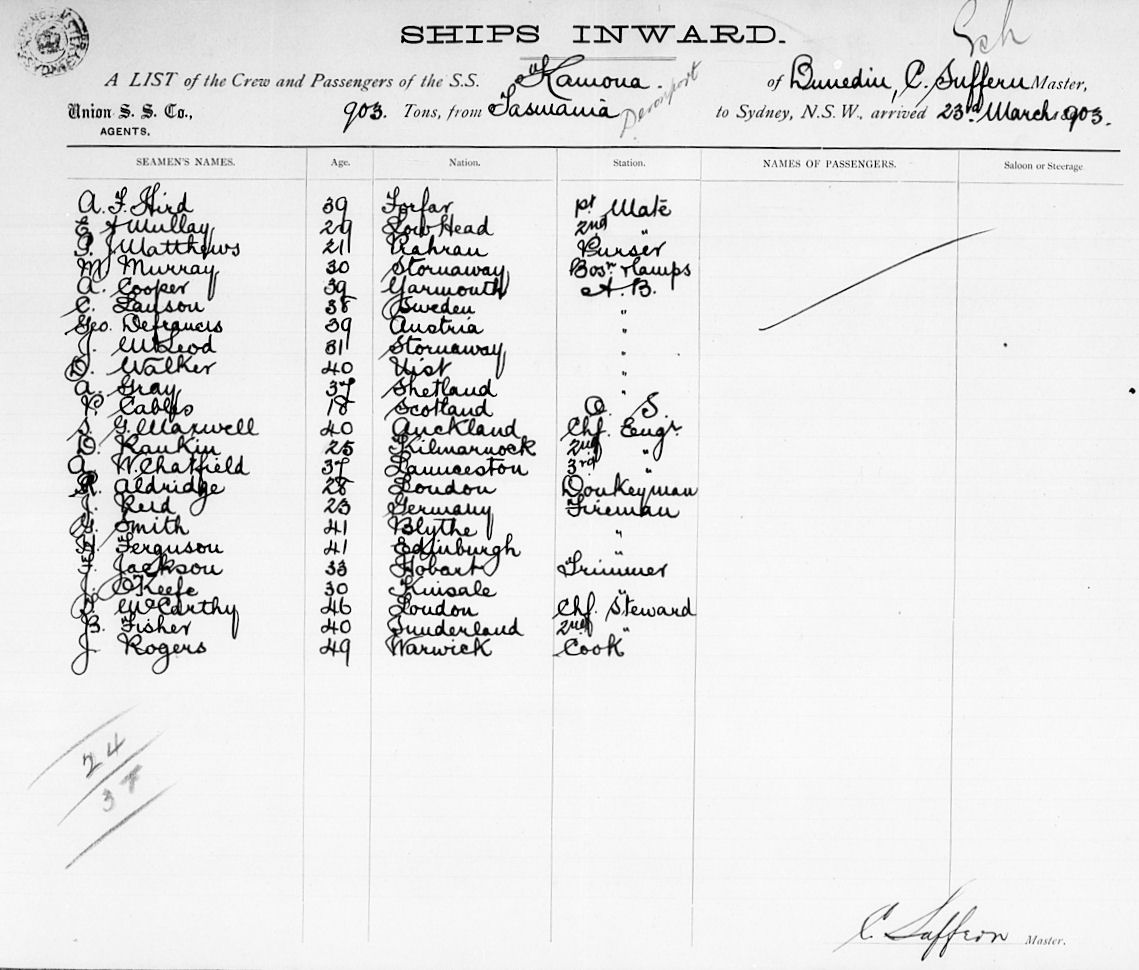 SHIPS INWARD.
A LIST of the Crew and Passengers of the S.S. "Kamona. of Dunedin, C. Suffern Master,
Union S. S. Co., 903. Tons, from Tasmania Devonport to Sydney, N.S.W., arrived 23rd March 1903.
AGENTS.
SEAMEN'S NAMES. Age. Nation. Station. NAMES OF PASSENGERS. Saloon or Steerage.
A. F. Hird 39 Forfar 1st Mate
E Mullay 29 Low Head 2nd "
P. J Matthews 21 Prahran Purser
M. Murray 30 Stornaway Bosn & Lamps
A. Cooper 39 Yarmouth A. B.
C. Lauson 38 Sweden "
Geo. Defrancis 39 Austria "
J. McLeod 31 Stornaway "
D. Walker 40 Uist "
A. Gray 37 Shetland "
P. Cables 18 Scotland O. S
S. G. Maxwell 40 Auckland Chf. Engr.
D. Rankin 25 Kilmarnock 2nd "
A. W. Chatfield 37 Launceston 3rd "
R. Aldridge 28 London Donkeyman
J. Reid 23 Germany Fireman
G. Smith 41 Blythe "
H. Ferguson 41 Edinburgh "
F. Jackson 33 Hobart Trimmer
J. O'Keefe 30 Kinsale "
D. McCarthy 46 London Chf. Steward
B. Fisher 40 Sunderland 2nd "
J Rogers 49 Warwick Cook
24
37
C. Saffern Master.